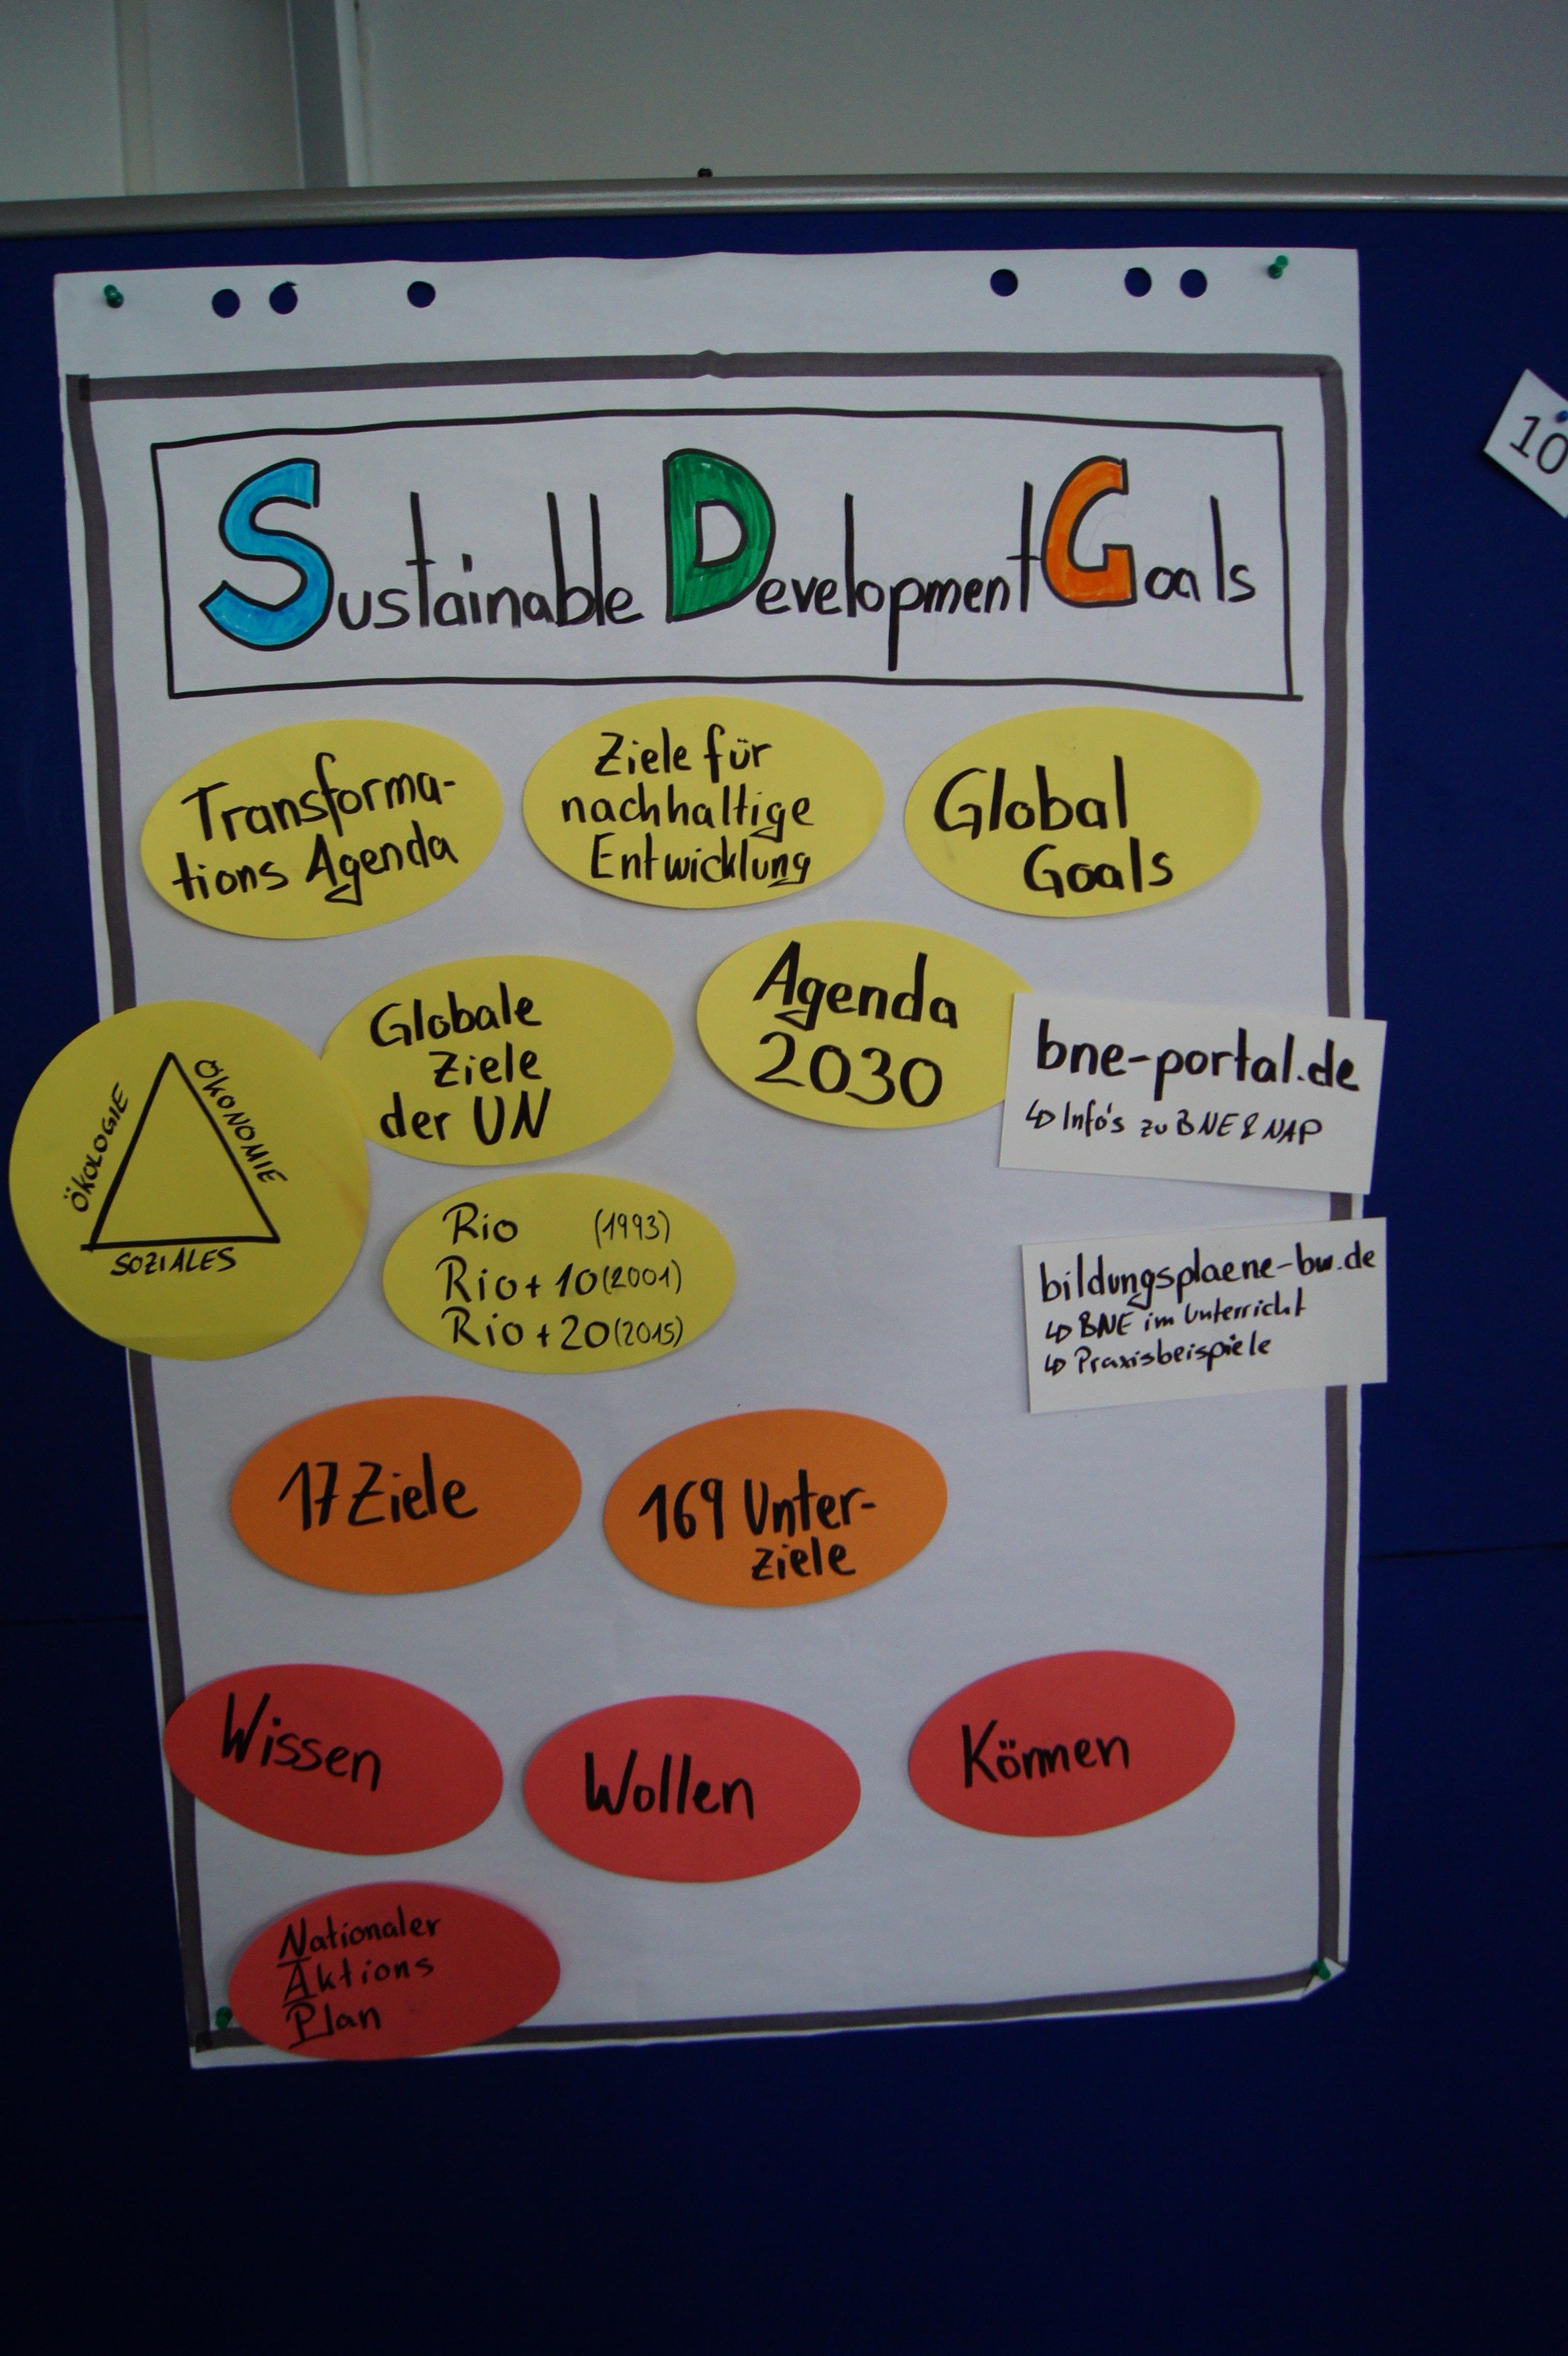 10
Sustainable Development Goals
Transforma-
tions Agenda
Ziele für
nachhaltige
Entwicklung
Global
Goals
Globale
Ziele
der UN
Agenda
2030
bne-portal.de
↳ Info's zu BNE & NAP
ÖKOLOGIE
ÖKONOMIE
SOZIALES
Rio (1993)
Rio + 10 (2001)
Rio + 20 (2015)
bildungsplaene-bw.de
↳ BNE im Unterricht
↳ Praxisbeispiele
17 Ziele
169 Unter-
ziele
Wissen
Wollen
Können
Nationaler
Aktions
Plan